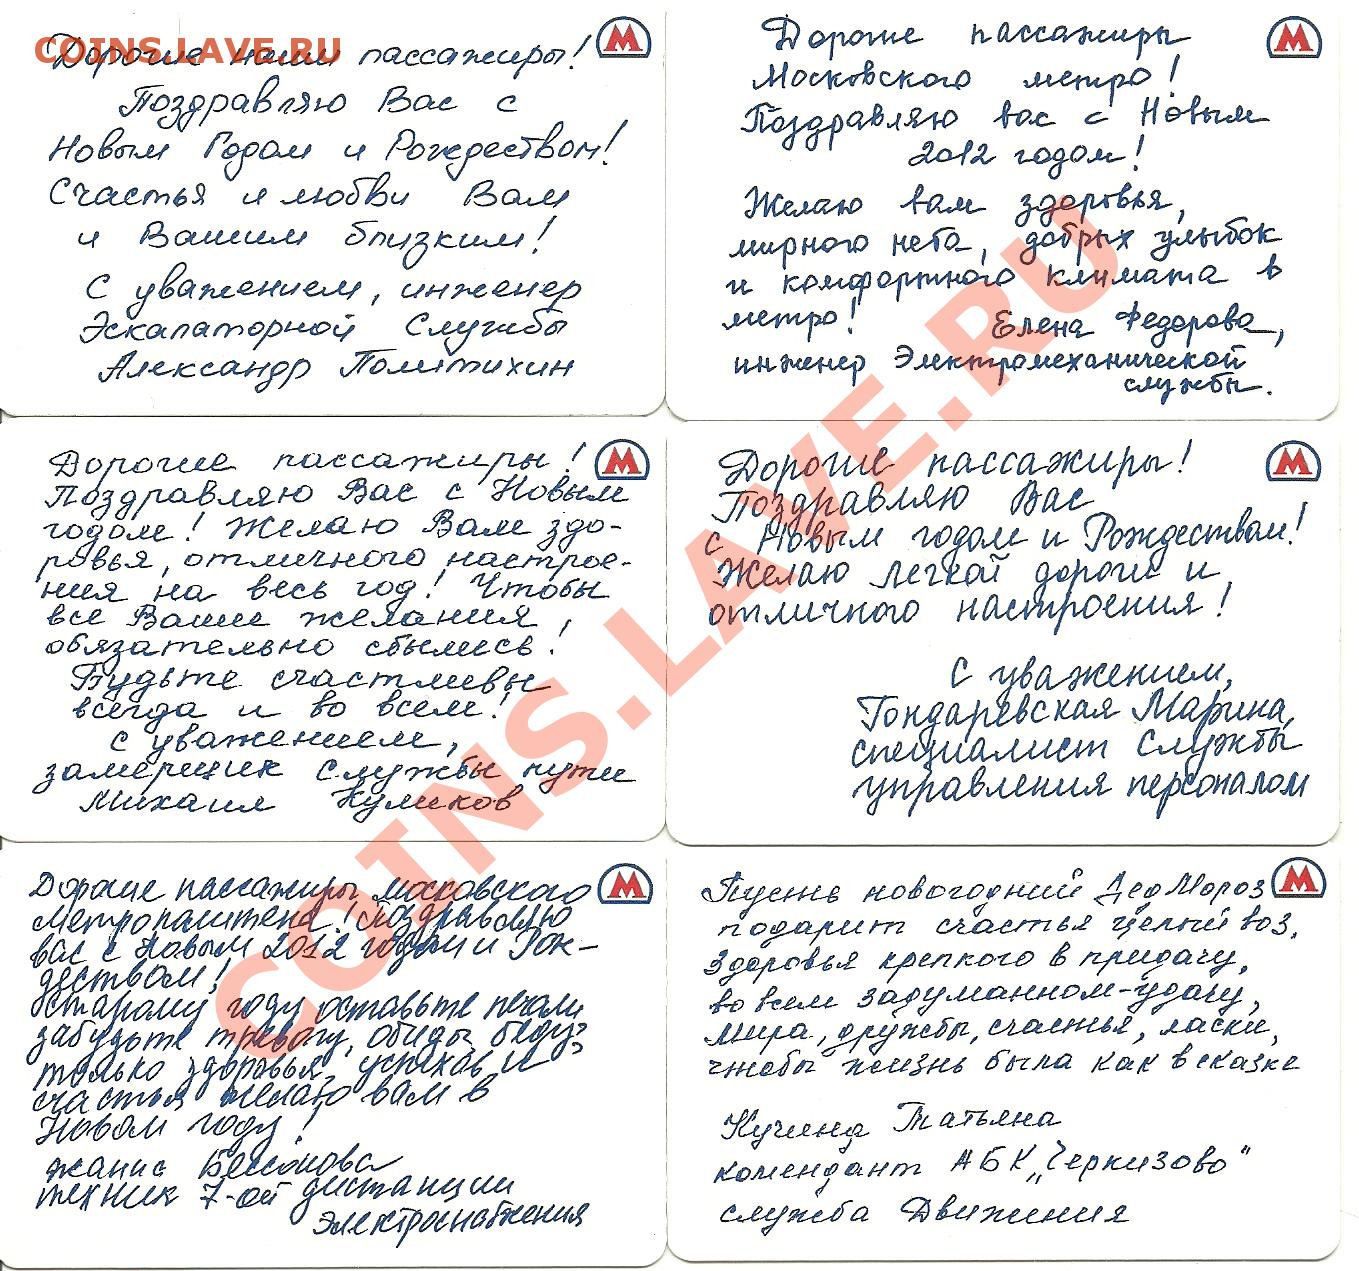 COINS.LAVE.RU
Дорогие наши пассажиры!
Поздравляю Вас с
Новым Годом и Рождеством!
Счастья и любви Вам
и Вашим близким!
С уважением, инженер
Эскалаторной Службы
Александр Политихин
М
Дорогие пассажиры
Московского метро!
Поздравляю вас с Новым
2012 годом!
Желаю вам здоровья,
мирного неба, добрых улыбок
и комфортного климата в
метро!
Елена Федорова,
инженер Электромеханической
службы.
М
Дорогие пассажиры!
Поздравляю Вас с Новым
годом! Желаю Вам здо-
ровья, отличного настрое-
ния на весь год! Чтобы
все Ваши желания
обязательно сбылись!
Будьте счастливы
всегда и во всем!
с уважением,
замерщик службы пути
Михаил Куликов
М
Дорогие пассажиры!
Поздравляю Вас
с Новым годом и Рождеством!
Желаю легкой дороги и
отличного настроения!
С уважением,
Гондаревская Марина,
специалист службы
управления персоналом
М
Дорогие пассажиры московского
метрополитена! Поздравляю
вас с Новым 2012 годом и Рож-
деством!
Старому году оставьте печали
забудьте тревоги, обиды, беду,
только здоровья, успехов и
счастья желаю вам в
Новом году!
Жанна Бессонова
техник 7-ой дистанции
электроснабжения
М
Пусть новогодний Дед Мороз
подарит счастья целый воз,
Здоровья крепкого в придачу,
во всем задуманном-удачу,
Мира, дружбы, счастья, ласки,
чтобы жизнь была как в сказке
Татьяна
комендант АБК "Черкизово"
служба Движения
М
COINS.LAVE.RU